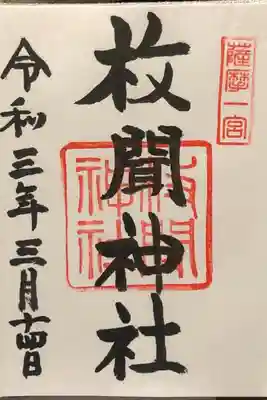 薩摩一宮
枚聞神社
枚聞神社
令和三年三月十四日